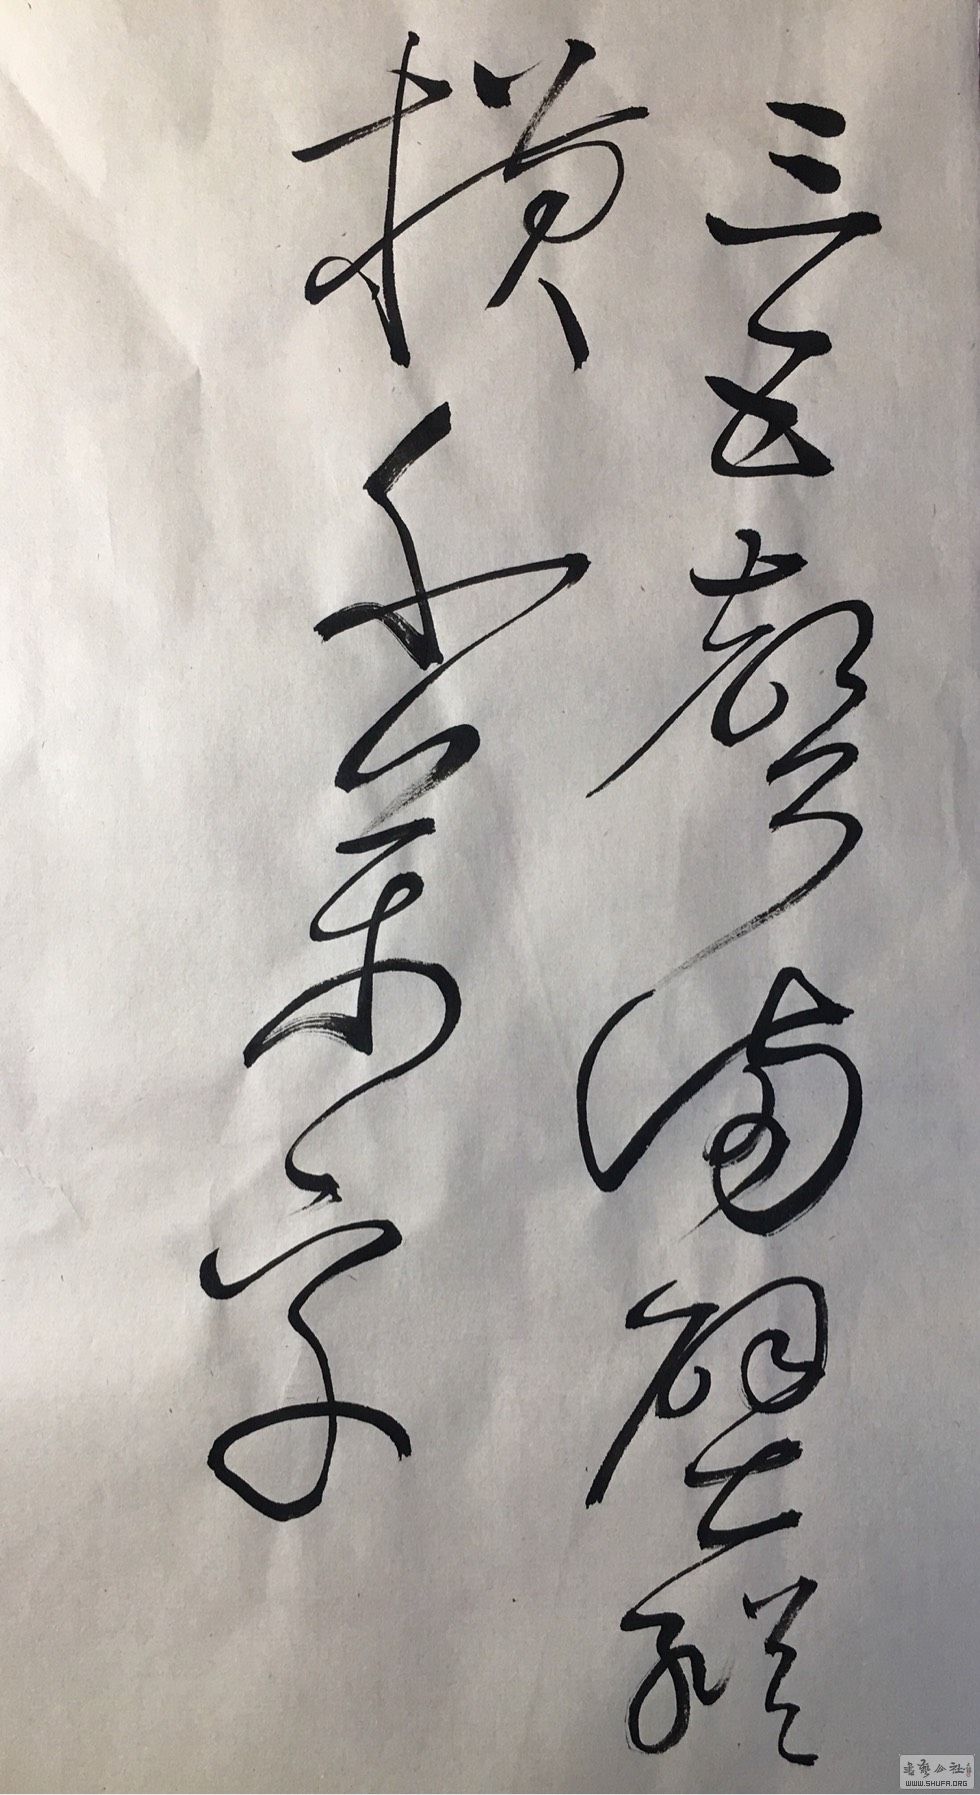 三五声满壁纵
横千万字
书艺公社
WWW.SHUFA.ORG